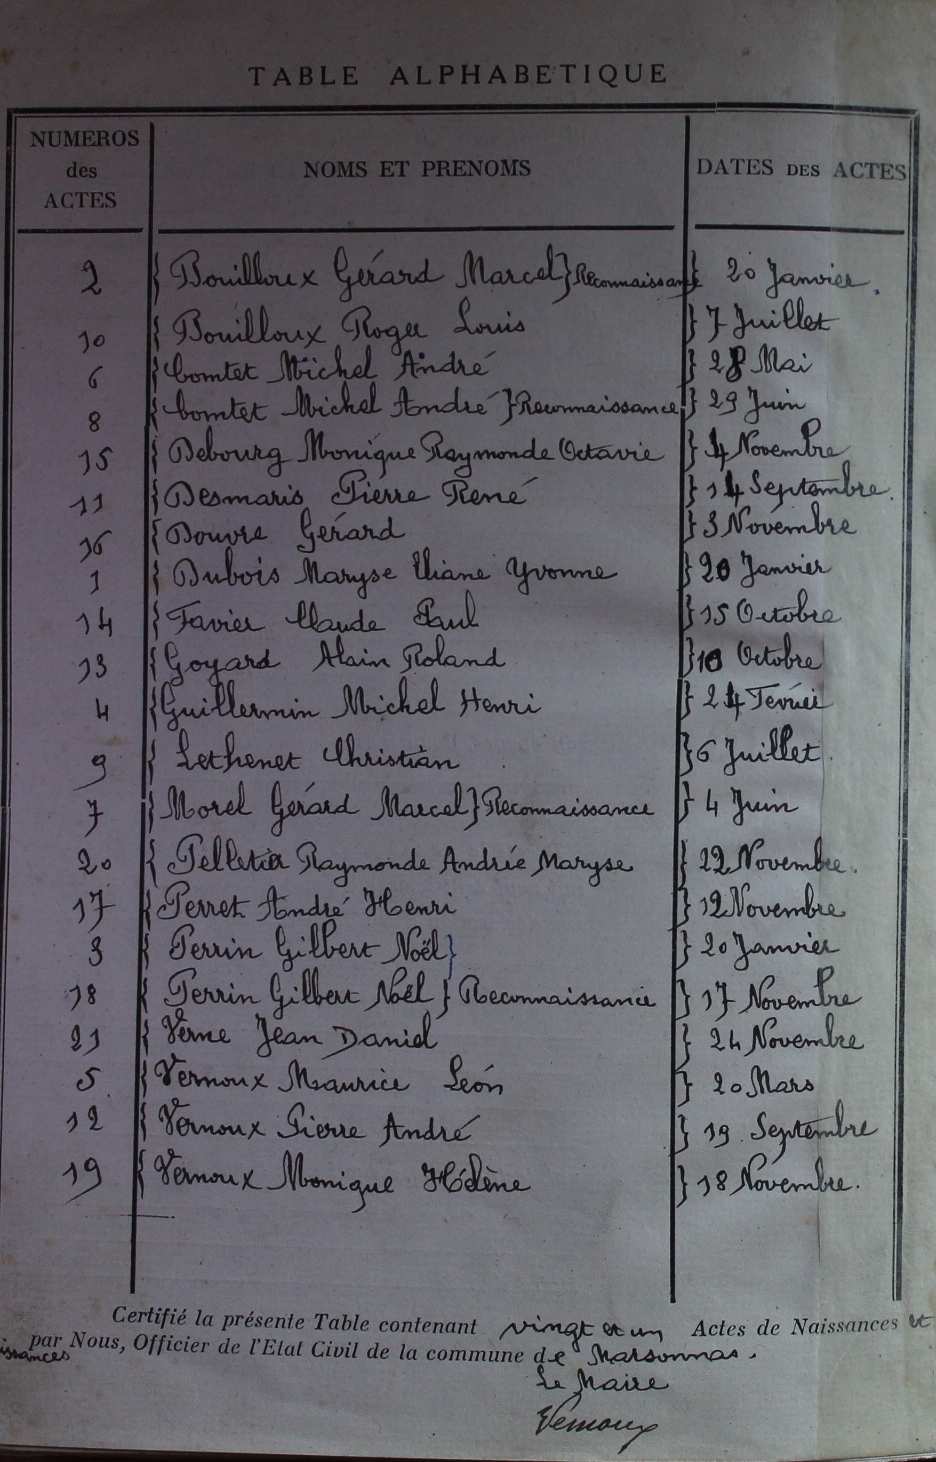 TABLE ALPHABETIQUE
NUMEROS des ACTES NOMS ET PRENOMS DATES DES ACTES
2 { Bouilloux Gérard Marcel } Reconnaissance } 20 Janvier.
10 { Bouilloux Roger Louis } 7 Juillet
6 { Comtet Michel André } 28 Mai
8 { Comtet Michel André } Reconnaissance } 29 Juin
15 { Debourg Monique Raymonde Octavie } 4 Novembre
11 { Desmaris Pierre René } 14 Septembre.
16 { Douvre Gérard } 3 Novembre
1 { Dubois Maryse Eliane Yvonne } 20 Janvier
14 { Favier Claude Paul } 15 Octobre
13 { Goyard Alain Roland } 10 Octobre
4 { Guillermin Michel Henri } 24 Février
9 { Lethenet Christian } 6 Juillet.
7 { Morel Gérard Marcel } Reconnaissance } 4 Juin
20 { Pelletier Raymonde Andrée Maryse } 22 Novembre.
17 { Perret André Henri } 12 Novembre
3 { Perrin Gilbert Noël } } 20 Janvier
18 { Perrin Gilbert Noël } Reconnaissance } 17 Novembre
21 { Verne Jean Daniel } 24 Novembre
5 { Vernoux Maurice Léon } 20 Mars
12 { Vernoux Pierre André } 19 Septembre
19 { Vernoux Monique Hélène } 18 Novembre.
Certifié la présente Table contenant vingt et un Actes de Naissances et
par Nous, Officier de l'Etat Civil de la commune de Marsonnas.
Le Maire
Vernoux